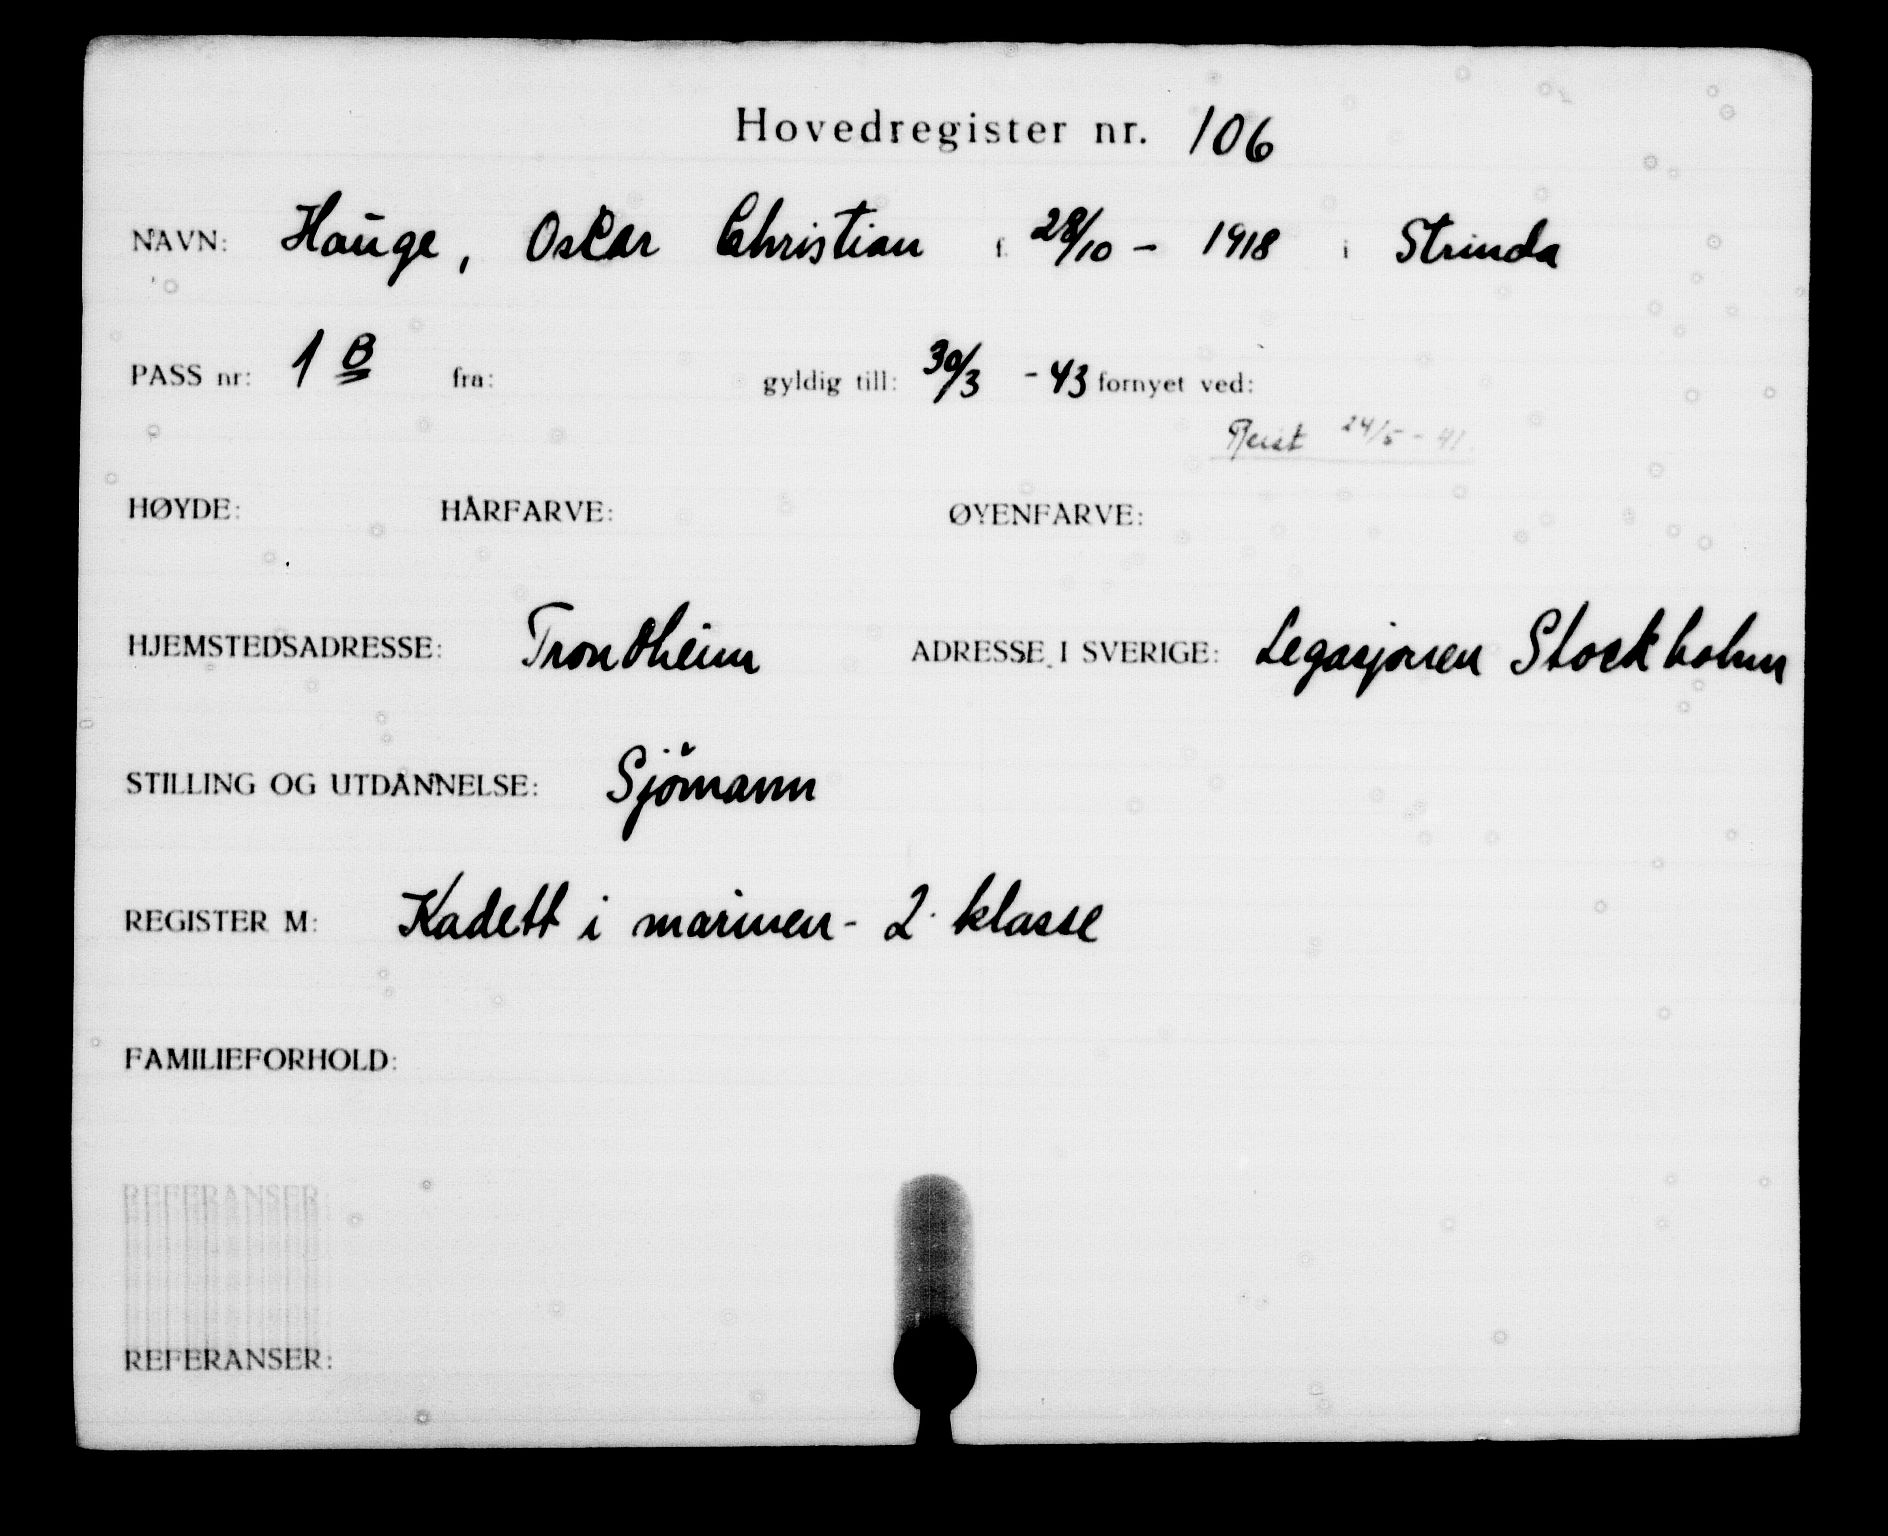 Hovedregister nr. 106
NAVN: Hauge, Oscar Christian f. 28/10 - 1918 i Strinda
PASS nr: 1 B fra: gyldig till: 30/3 - 43 fornyet ved:
Reist 24/5 - 41.
HØYDE: HÅRFARVE: ØYENFARVE:
HJEMSTEDSADRESSE: Trondheim ADRESSE I SVERIGE: Legasjonen Stockholm
STILLING OG UTDANNELSE: Sjömann
REGISTER M: Kadett i marinen - 2. klasse
FAMILIEFORHOLD:
REFERANSER:
REFERANSER: